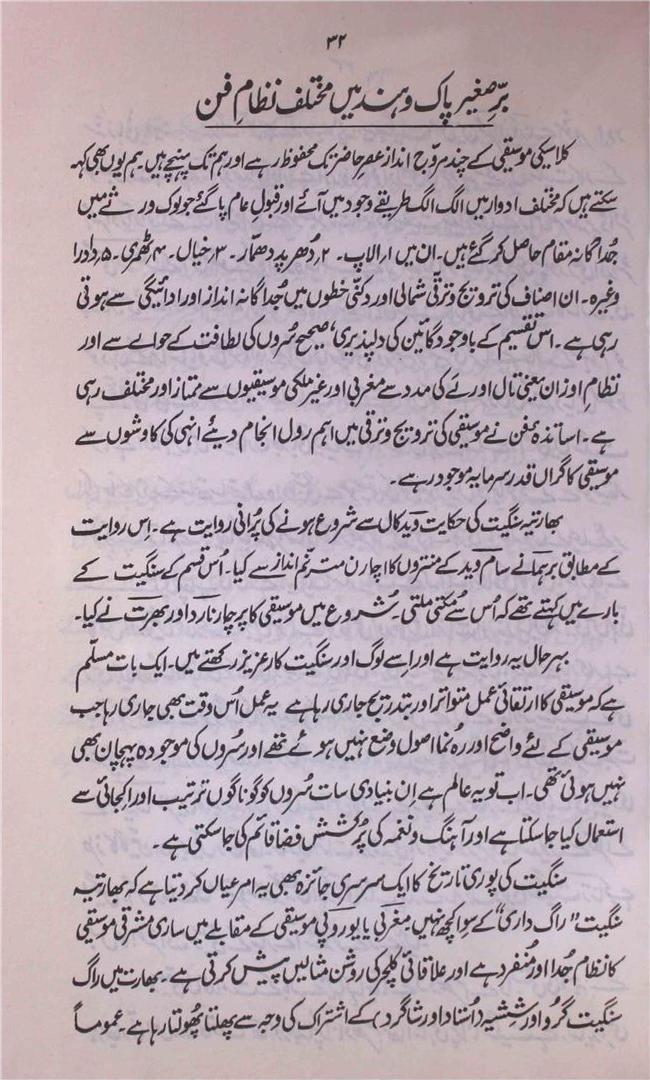 ۳۲
برِّصغیر پاک و ہند میں مختلف نظامِ فن
کلاسیکی موسیقی کے چند مروّج انداز عصرِ حاضر تک محفوظ رہے اور ہم تک پہنچے ہیں۔ ہم یوں بھی کہہ
سکتے ہیں کہ مختلف ادوار میں الگ الگ طریقے وجود میں آئے اور قبولِ عام پا گئے جو لوک ورثے میں
جُداگانہ مقام حاصل کر گئے ہیں۔ ان میں ۱۔ الاپ۔ ۲۔ دُھرپد دھمّار۔ ۳۔ خیال۔ ۴۔ ٹھمری۔ ۵۔ دادرا
وغیرہ۔ ان اصناف کی ترویج و ترقّی شمالی اور دکنی خطوں میں جُداگانہ انداز اور ادائیگی سے ہوتی
رہی ہے۔ اس تقسیم کے باوجود گائین کی دلپذیری، صحیح سُروں کی لطافت کے حوالے سے اور
نظامِ اوزان یعنی تال اور لَے کی مدد سے مغربی اور غیر ملکی موسیقیوں سے ممتاز اور مختلف رہی
ہے۔ اساتذۂ فن نے موسیقی کی ترویج و ترقی میں اہم رول انجام دیئے انہی کی کاوشوں سے
موسیقی کا گراں قدر سرمایہ موجود رہے۔
بھارتیہ سنگیت کی حکایت وید کال سے شروع ہونے کی پُرانی روایت ہے۔ اِس روایت
کے مطابق برہمانے سام وید کے منتروں کا اچارن مترنّم انداز سے کیا۔ اُس قسم کے سنگیت کے
بارے میں کہتے تھے کہ اُس سے مُکتی ملتی۔ شروع میں موسیقی کا پرچار نارَد اور بھرت نے کیا۔
بہرحال یہ روایت ہے اور اِسے لوگ اور سنگیت کار عزیز رکھتے ہیں۔ ایک بات مسلّم
ہے کہ موسیقی کا ارتقائی عمل متواتر اور بتدریج جاری رہا ہے یہ عمل اُس وقت بھی جاری رہا جب
موسیقی کے لئے واضح اور رہ نما اصول وضع نہیں ہوئے تھے اور سُروں کی موجودہ پہچان بھی
نہیں ہوئی تھی۔ اب تو یہ عالم ہے اِن بنیادی سات سُروں کو گوناگوں ترتیب اور اکجائی سے
استعمال کیا جا سکتا ہے اور آہنگ و نغمہ کی پُرکشش فضا قائم کی جا سکتی ہے۔
سنگیت کی پوری تاریخ کا ایک سرسری جائزہ بھی یہ امر عیاں کر دیتا ہے کہ بھارتیہ
سنگیت "راگ داری" کے سوا کچھ نہیں مغربی یا یوروپی موسیقی کے مقابلے میں ساری مشرقی موسیقی
کا نظام جُدا اور مُنفرد ہے اور علاقائی کلچر کی روشن مثالیں پیش کرتی ہے۔ بھارت میں راگ
سنگیت گُرو اور شِشیہ (اُستاد اور شاگرد) کے اشتراک کی وجہ سے پھلتا پھُولتا رہا ہے۔ عموماً